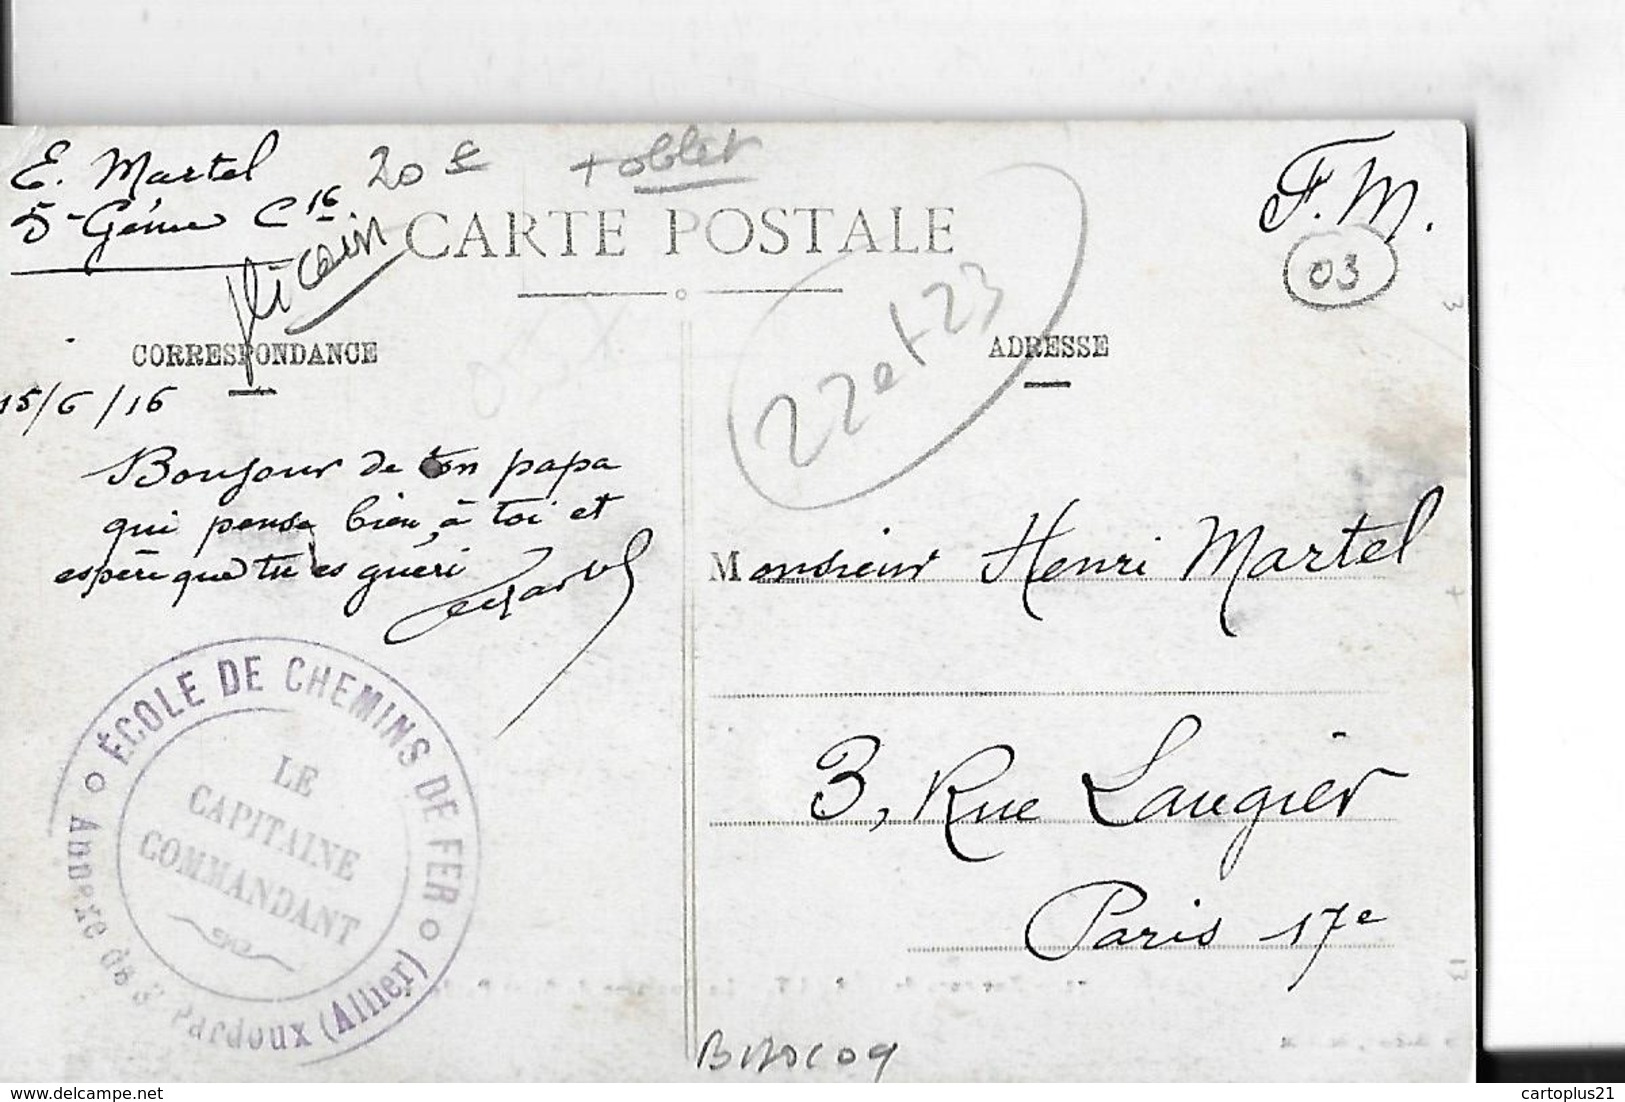 E. Martel
5e Génie Cie 16
20 €
+ oblet
CARTE POSTALE
F.M.
03
22 et 23
CORRESPONDANCE
ADRESSE
15/6/16
Bonjour de ton papa
qui pense bien à toi et
espère que tu es guéri
EMartel
Monsieur Henri Martel
3, Rue Laugier
Paris 17e
ÉCOLE DE CHEMINS DE FER
LE
CAPITAINE
COMMANDANT
Annexe de St Pardoux (Allier)
delcampe.net
cartoplus21